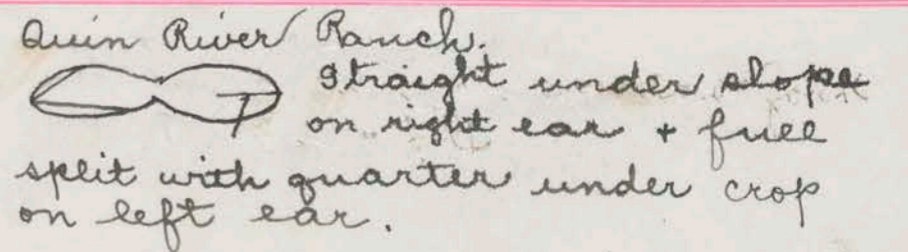 Quin River Ranch.
Straight under slope
on right ear + full
split with quarter under crop
on left ear.